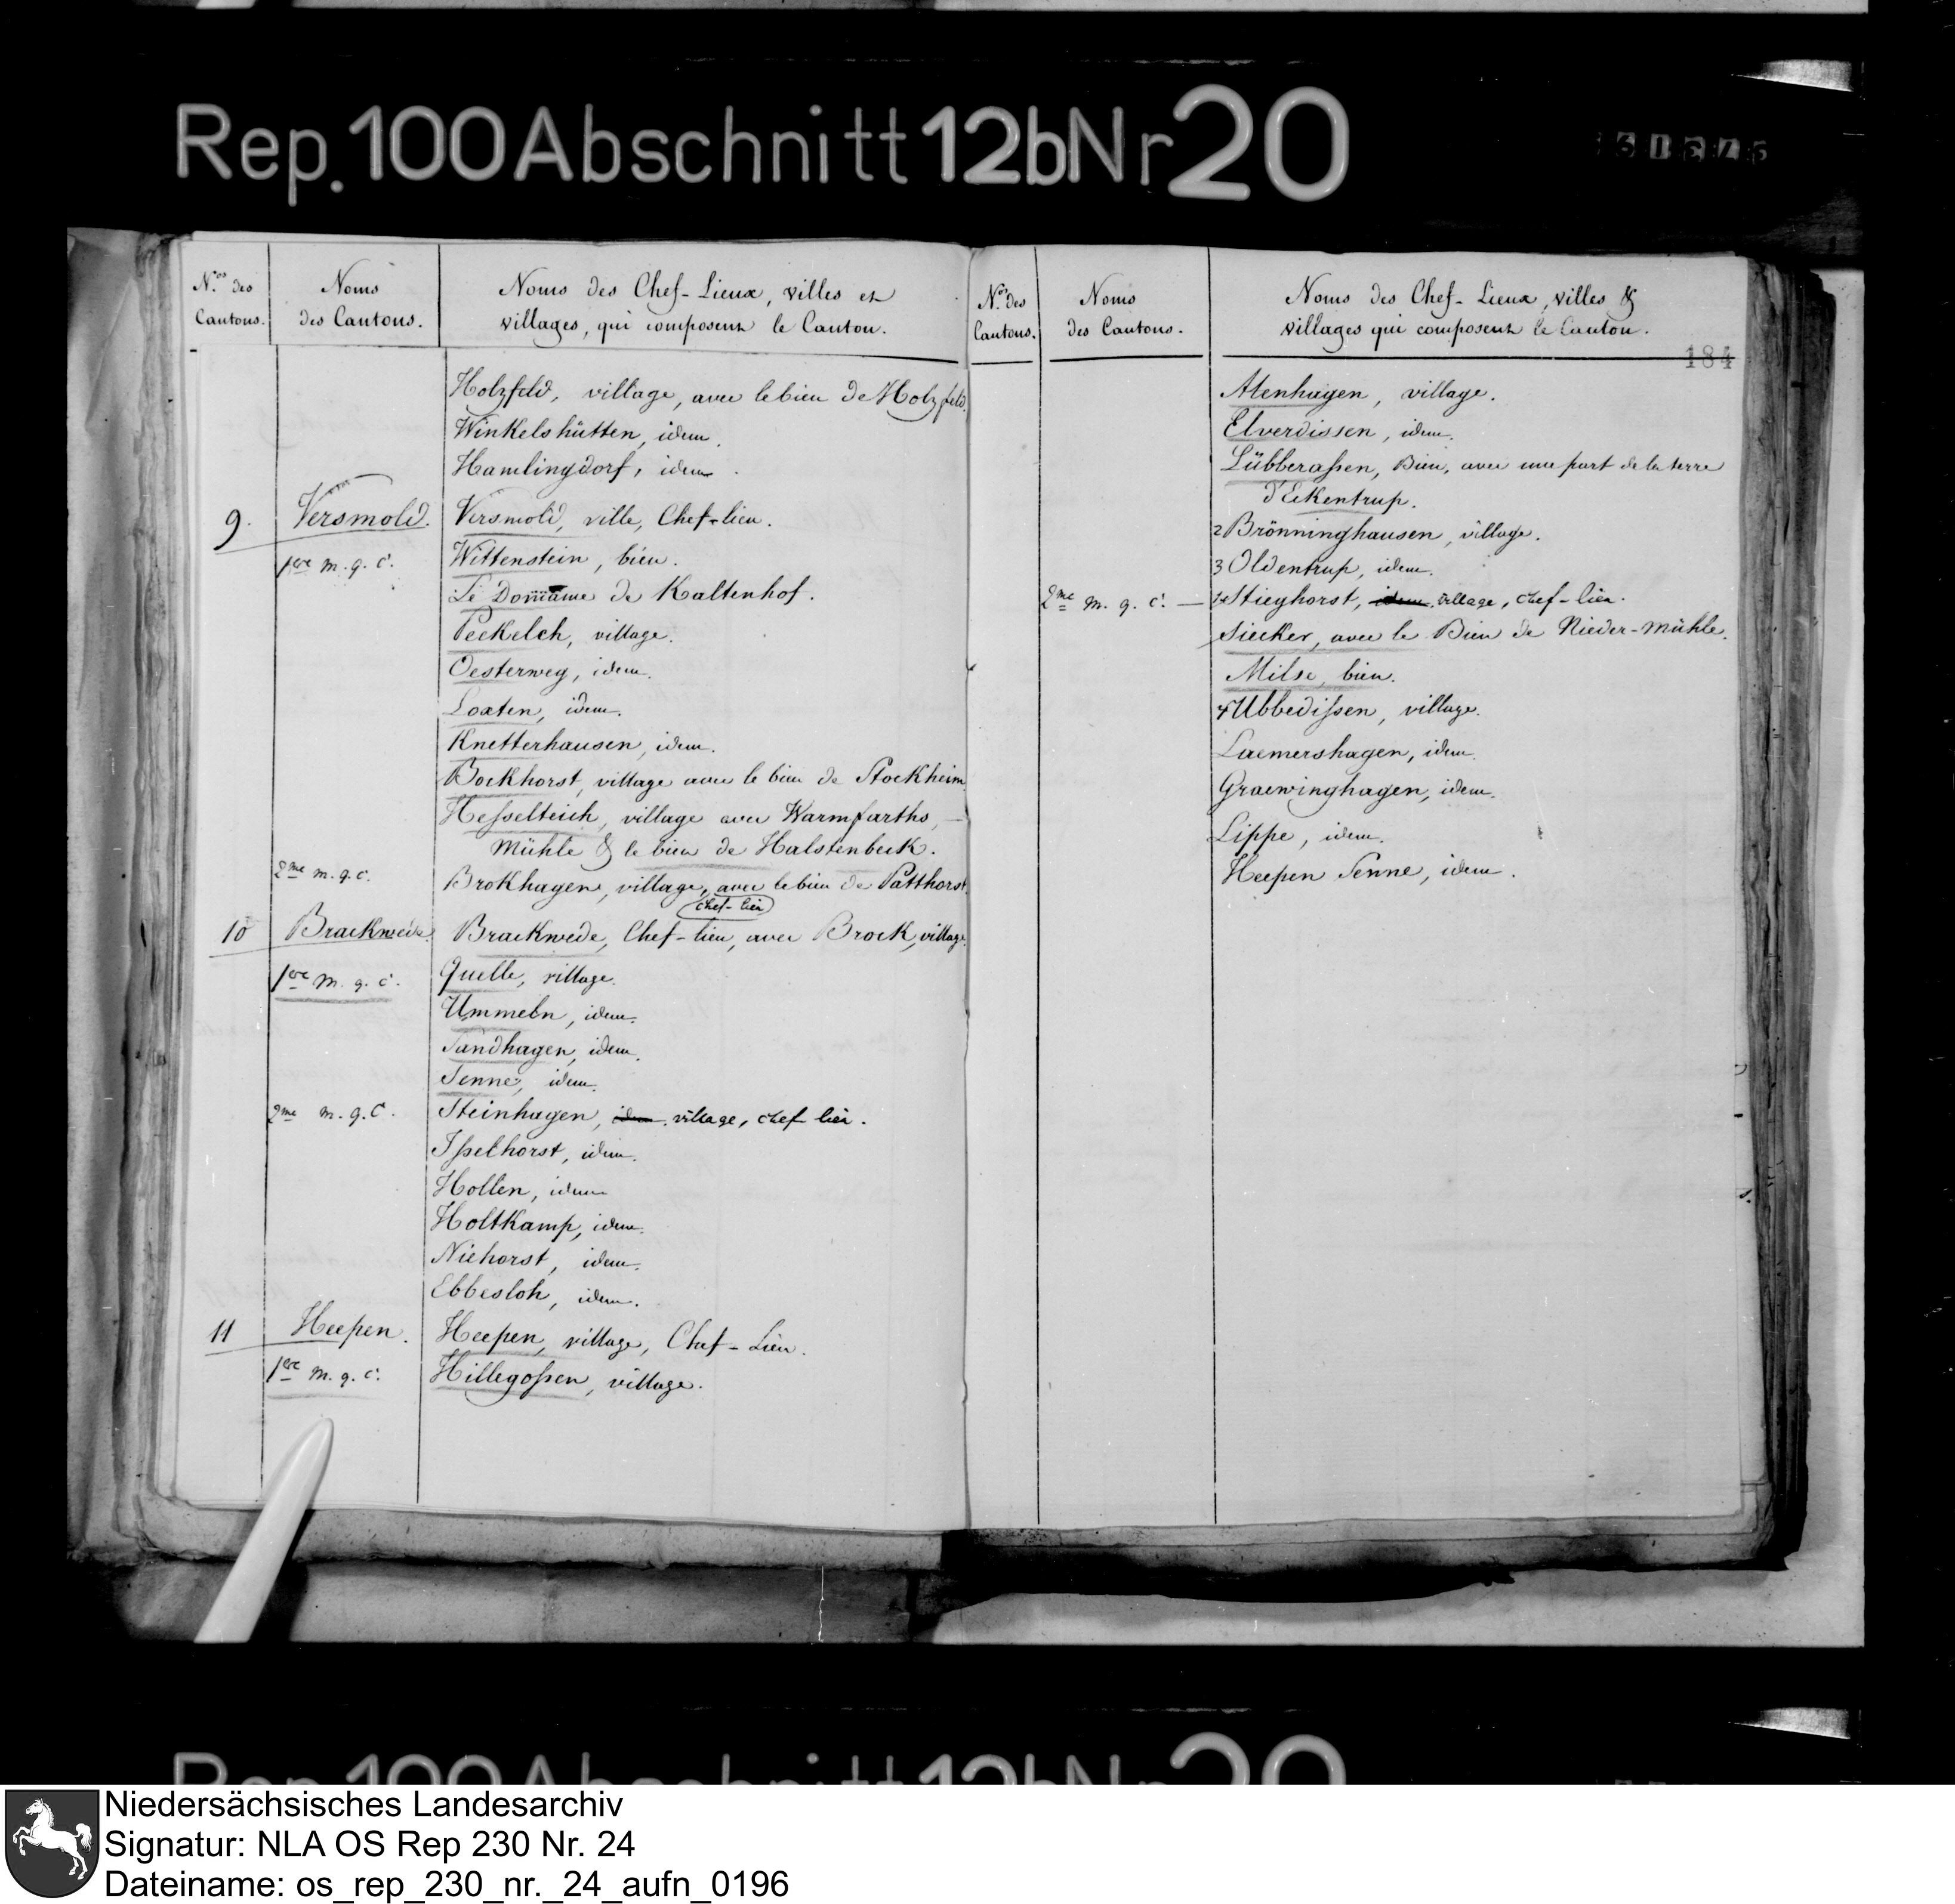 Rep. 100 Abschnitt 12b Nr 20
N.os des Cantons.
Noms des Cantons.
Noms des Chef-Lieux, villes et
villages, qui composent le Canton.
Holzfeld, village, avec le bien de Holzfeld.
Winkelshütten, idem.
Hamlingdorf, idem.
9. Versmold. Versmold, ville, Chef-lieu.
1ere m. g. c. Wittenstein, bien.
Le Domäme de Kaltenhof.
Peckelch, village.
Oesterweg, idem.
Loxten, idem.
Knetterhausen, idem.
Bockhorst, village avec le bien de Stockheim.
Hesselteich, village avec Warmfarths,
Mühle & le bien de Halstenbeck.
2me m. g. c. Brokhagen, village, avec le bien de Patthorst.
chef-lieu
10 Brackwede. Brackwede, Chef-lieu, avec Brock, village.
1ere m. g. c. Quelle, village.
Ummeln, idem.
Sandhagen, idem.
Senne, idem.
2me m. g. c. Steinhagen, idem. village, chef lieu.
Isselhorst, idem.
Hollen, idem
Holtkamp, idem.
Niehorst, idem.
Ebbesloh, idem.
11 Heepen. Heepen, village, Chef-Lieu.
1ere m. g. c. Hillegossen, village.
N.os des Cantons.
Noms des Cantons.
Noms des Chef-Lieux, villes &
villages qui composent le Canton.
184
Altenhagen, village.
Elverdissen, idem.
Lübberassen, Bien, avec une part de la terre
d'Eckentrup.
2 Brönninghausen, village.
3 Oldentrup, idem.
2me m. g. c. — 1 Stieghorst, idem. village, chef-lieu.
Siecker, avec le Bien de Nieder-Mühle.
Milse, bien.
4 Ubbedissen, village.
Laemershagen, idem.
Graewinghagen, idem.
Lippe, idem.
Heepen Senne, idem.
Niedersächsisches Landesarchiv
Signatur: NLA OS Rep 230 Nr. 24
Dateiname: os_rep_230_nr._24_aufn_0196